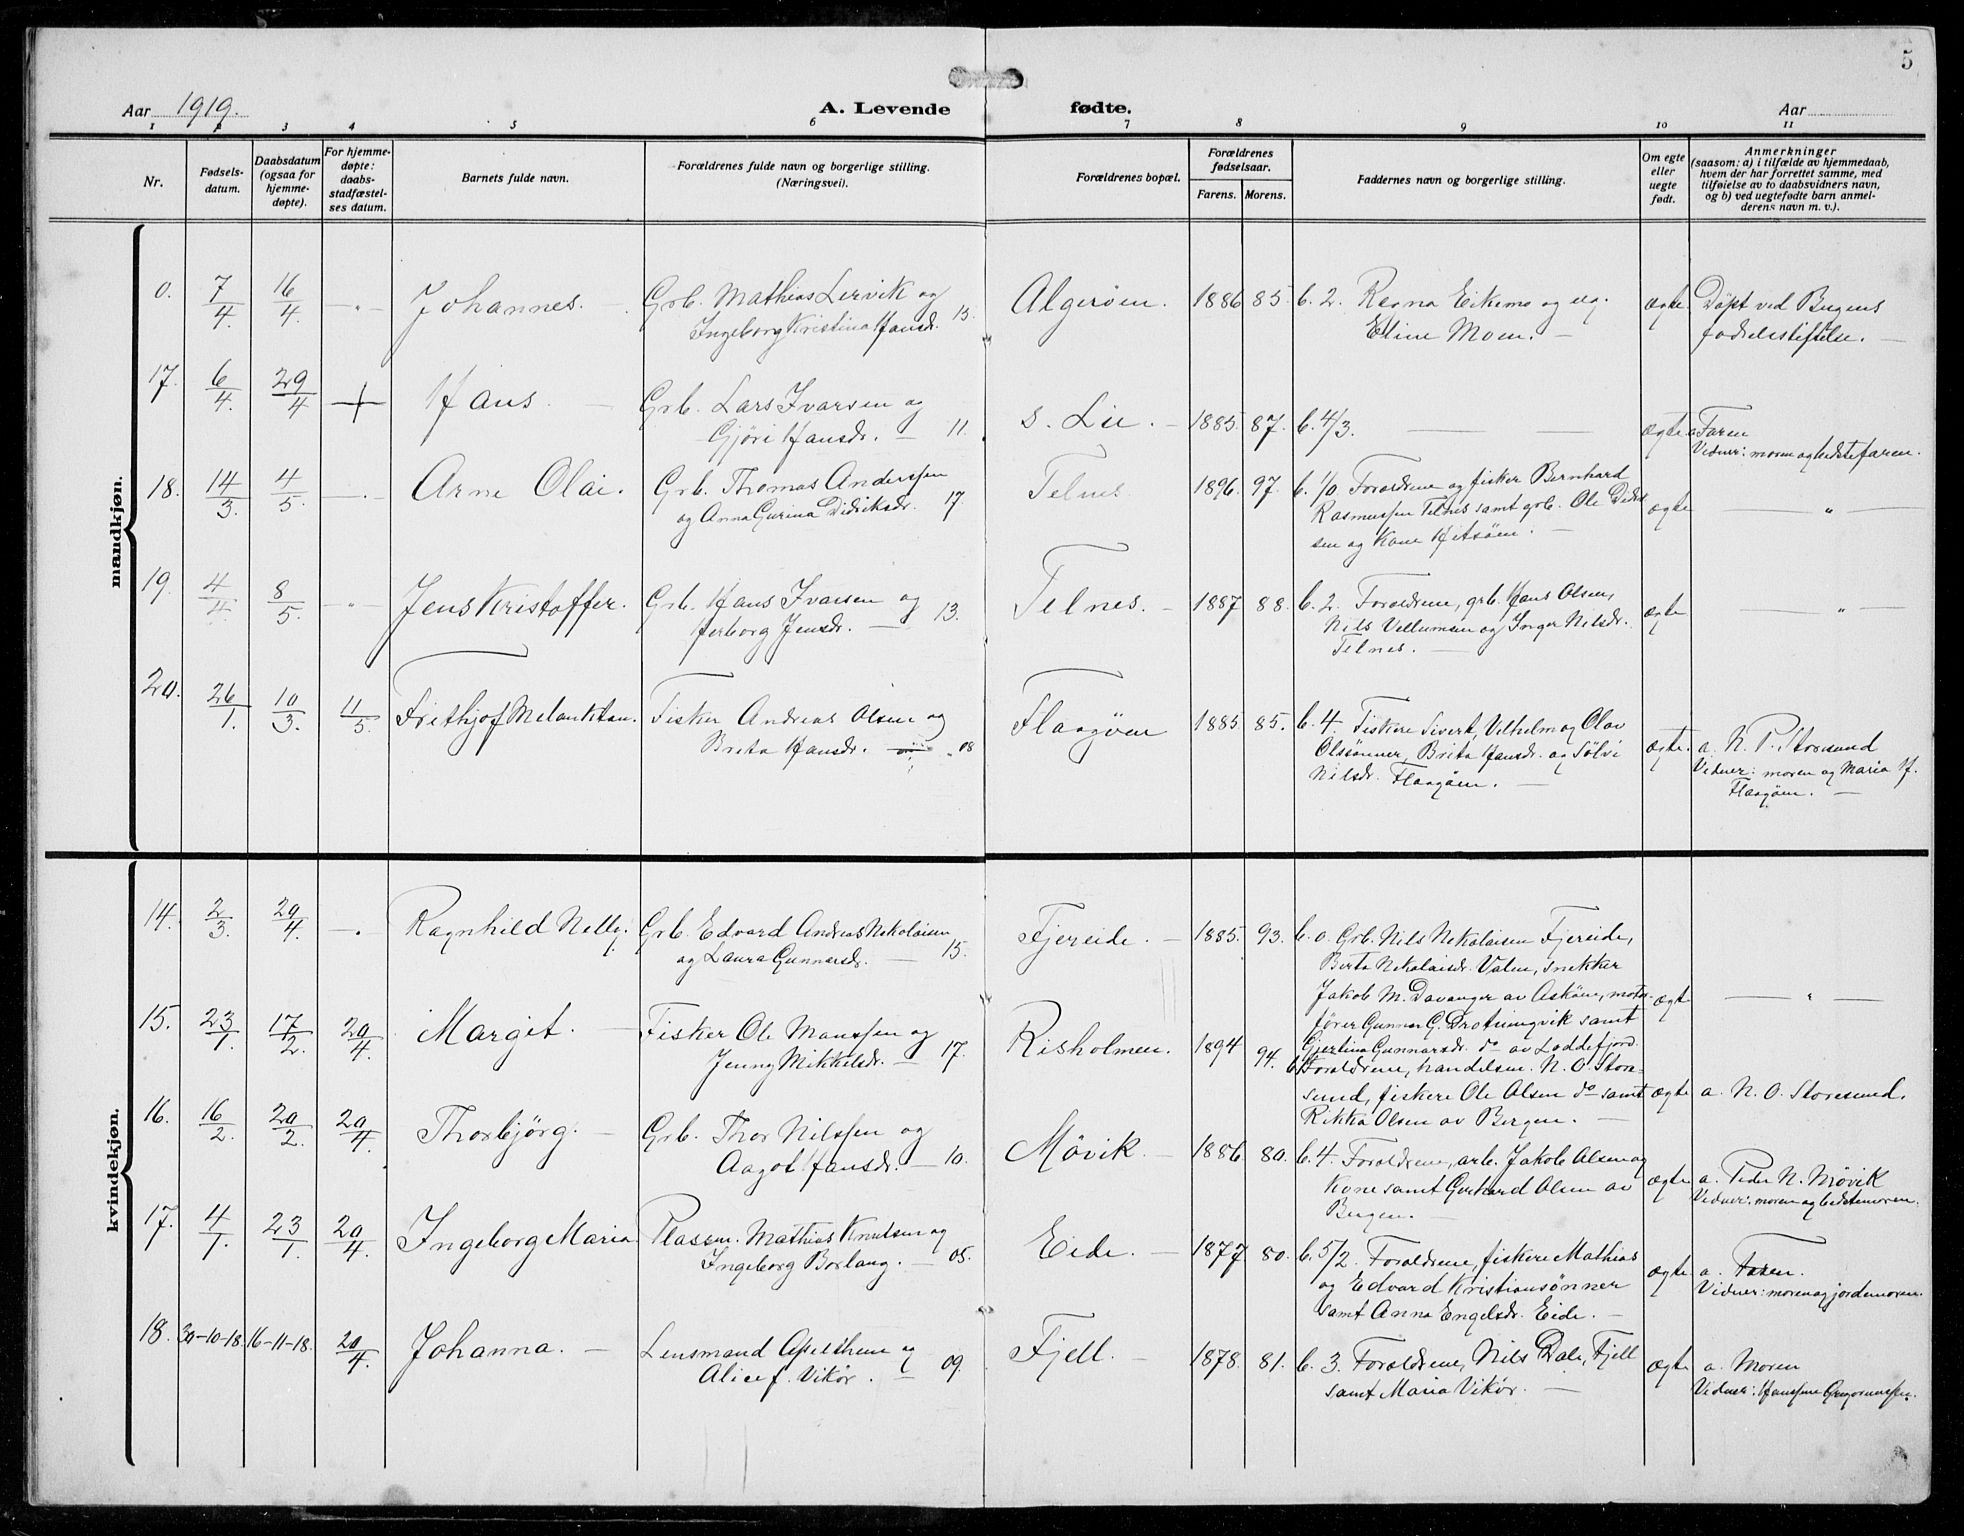 5
Aar 1919.
A. Levende
fødte.
Aar
1 2 3 4 5 6 7 8 9 10 11
Nr.
Fødsels-
datum.
Daabsdatum
(ogsaa for
hjemme-
døpte).
For hjemme-
døpte:
daabs-
stadfæstel-
ses datum.
Barnets fulde navn.
Forældrenes fulde navn og borgerlige stilling.
(Næringsvei).
Forældrenes bopæl.
Forældrenes
fødselsaar.
Farens. Morens.
Faddernes navn og borgerlige stilling.
Om egte
eller
uegte
født.
Anmerkninger
(saasom: a) i tilfælde av hjemmedaab,
hvem der har forrettet samme, med
tilføielse av to daabsvidners navn,
og b) ved uegtefødte barn anmel-
derens navn m. v.).
mandkjøn.
0. 7/4. 16/4. — " — Johannes. — Grb. Mathias Lervik og
Ingeborg Kristina Hansdr. 15.
Algerøen. 1886 85. b. 2. Ragna Eikemo og ug.
Eline Moen. —
ægte. Döpt ved Bergens
fødselsstiftelse. —
17. 6/4. 29/4 + Hans. — Grb. Lars Ivarsen og
Gjøri Hansdr. — 11.
s. Lie. — 1885. 87. b. 4/3. — — ægte a. Faren
Vidner: moren og bedstefaren.
18. 14/3. 4/5. — . — Arne Olai. Grb. Thomas Anderssen
og Anna Gurina Didriksdr. 17.
Telnes 1896. 97. b. 1/0 Forældrene og fisker Bernhard
Rasmussen Telnes samt grb. Ole Didrik
sen og Kone Hitsöen. —
ægte — " —
19. 4/4 8/5. — " — Jens Kristoffer. Grb. Hans Ivarsen og
Herborg Jensdr. — 13.
Telnes. — 1887 88. b. 2. Forældrene, grb. Hans Olsen,
Nils Vellumsen og Inger Nilsdr.
Telnes. —
ægte — " —
20. 26/1. 10/3. 11/5. Frithjof Melankton. Fisker Andreas Olsen og
Brita Hansdr. — 08
Flaagöen 1885 85. b. 4. Fiskere Sivert, Vilhelm og Olav
Olssönner, Brita Hansdr. og Sölvi
Nilsdr. Flaagöen. —
ægte. a. N. P. Storesund
Vidner: moren og Maria H.
Flaagöen. —
kvindekjøn.
14. 2/3. 20/4. — . Ragnhild Nelly. Grb. Edvard Andreas Nikolaisen
og Laura Gunnarsdr. — 15.
Fjereide. — 1885. 93. b. 0. Grb. Nils Nikolaisen Fjereide,
Berta Nikolaisdr. Valen, snekker
Jakob M. Davanger av Asköen, motor-
förer Gunnar G. Drotningvik samt
Gjertina Gunnarsdr. do av Loddefjord.
ægte — " —
15. 23/1. 17/2. 20/4. Margit. — Fisker Ole Monssen og
Jenny Mikkelsdr. — 17.
Risholmen. 1894 94. Forældrene, handelsm. N. O. Store-
sund, fiskere Ole Olsen do samt
Rikka Olsen av Bergen. —
ægte a. N. O. Storesund.
16. 16/2. 20/2. 20/4. Thorbjörg. — Grb. Thor Nilssen og
Aagot Hansdr. — 10.
Mövik. — 1886. 80. b. 4. Forældrene, arb. Jakob Olsen og
Kone samt Gerhard Olsen av
Bergen. —
ægte a. Peder N. Mövik
Vidner: moren og bedstemoren.
17. 4/1. 23/1. 20/4. Ingeborg Maria Plassm. Mathias Knutsen og
Ingeborg Borlaug. — 05.
Eide. — 1877 80. b. 5/2 Forældrene, fiskere Mathias
og Edvard Kristiansönner
samt Anna Engelsdr. Eide. —
ægte a. Faren.
Vidner: moren og jordemoren.
18. 30-10-18. 16-11-18. 20/4. Johanna. — Lensmand Apelthun og
Alice f. Vikör. — 09.
Fjell. — 1878. 81. b. 3. Forældrene, Nils Dale, Fjell
samt Maria Vikör. —
ægte a. Moren
Vidner: Hanssine Gregoriussen.